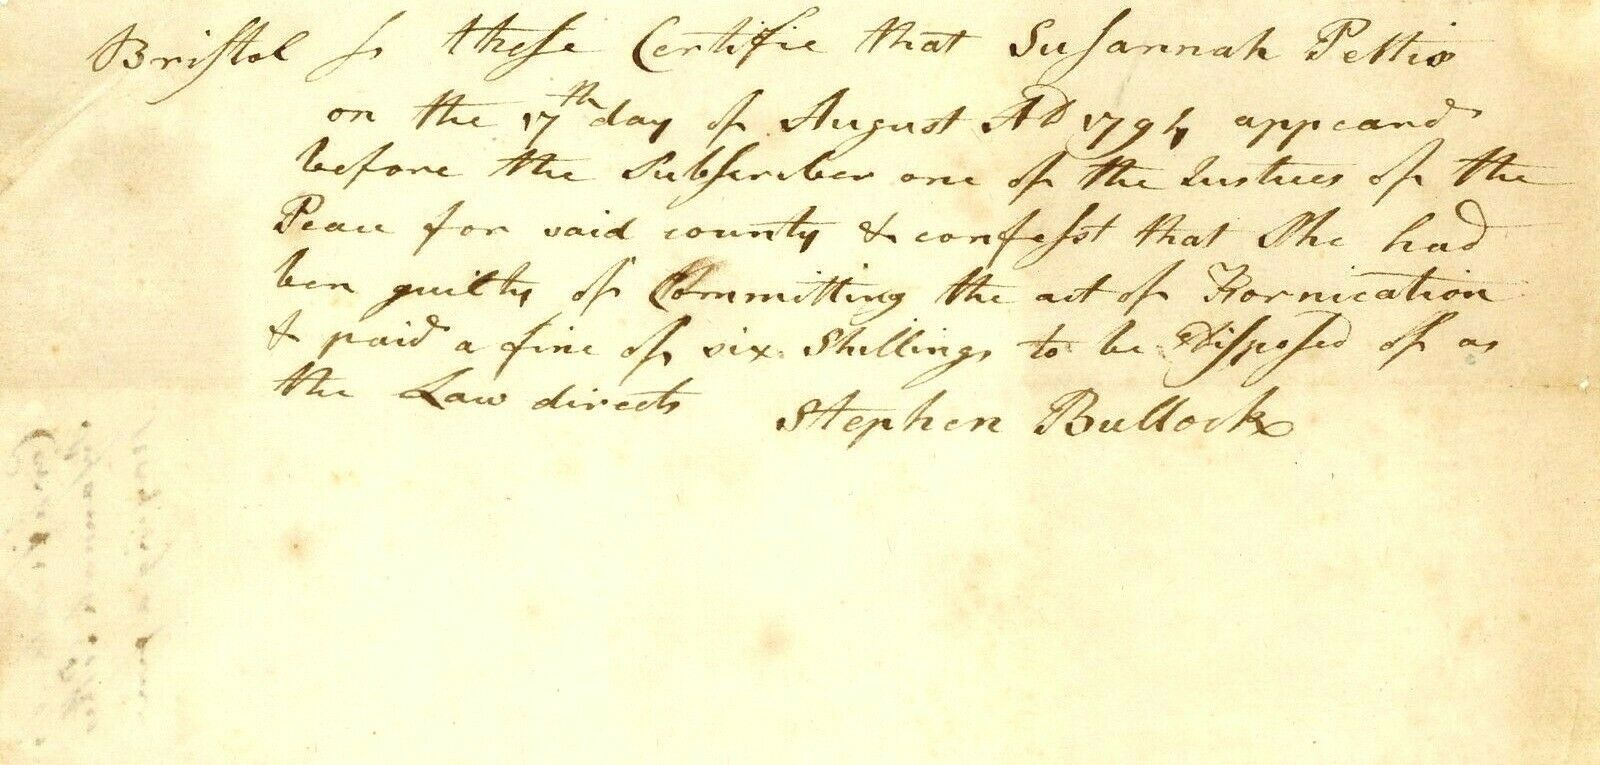 Bristol ss these Certifie that Susannah Pettis
on the 17th day of August AD 1794 appeard
before the Subscriber one of the Justices of the
Peace for said county & confesst that She had
ben guilty of Committing the act of Fornication
& paid a fine of six Shillings to be Disposed of as
the Law directs
Stephen Bullock